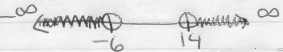 -∞ ∞
-6 14